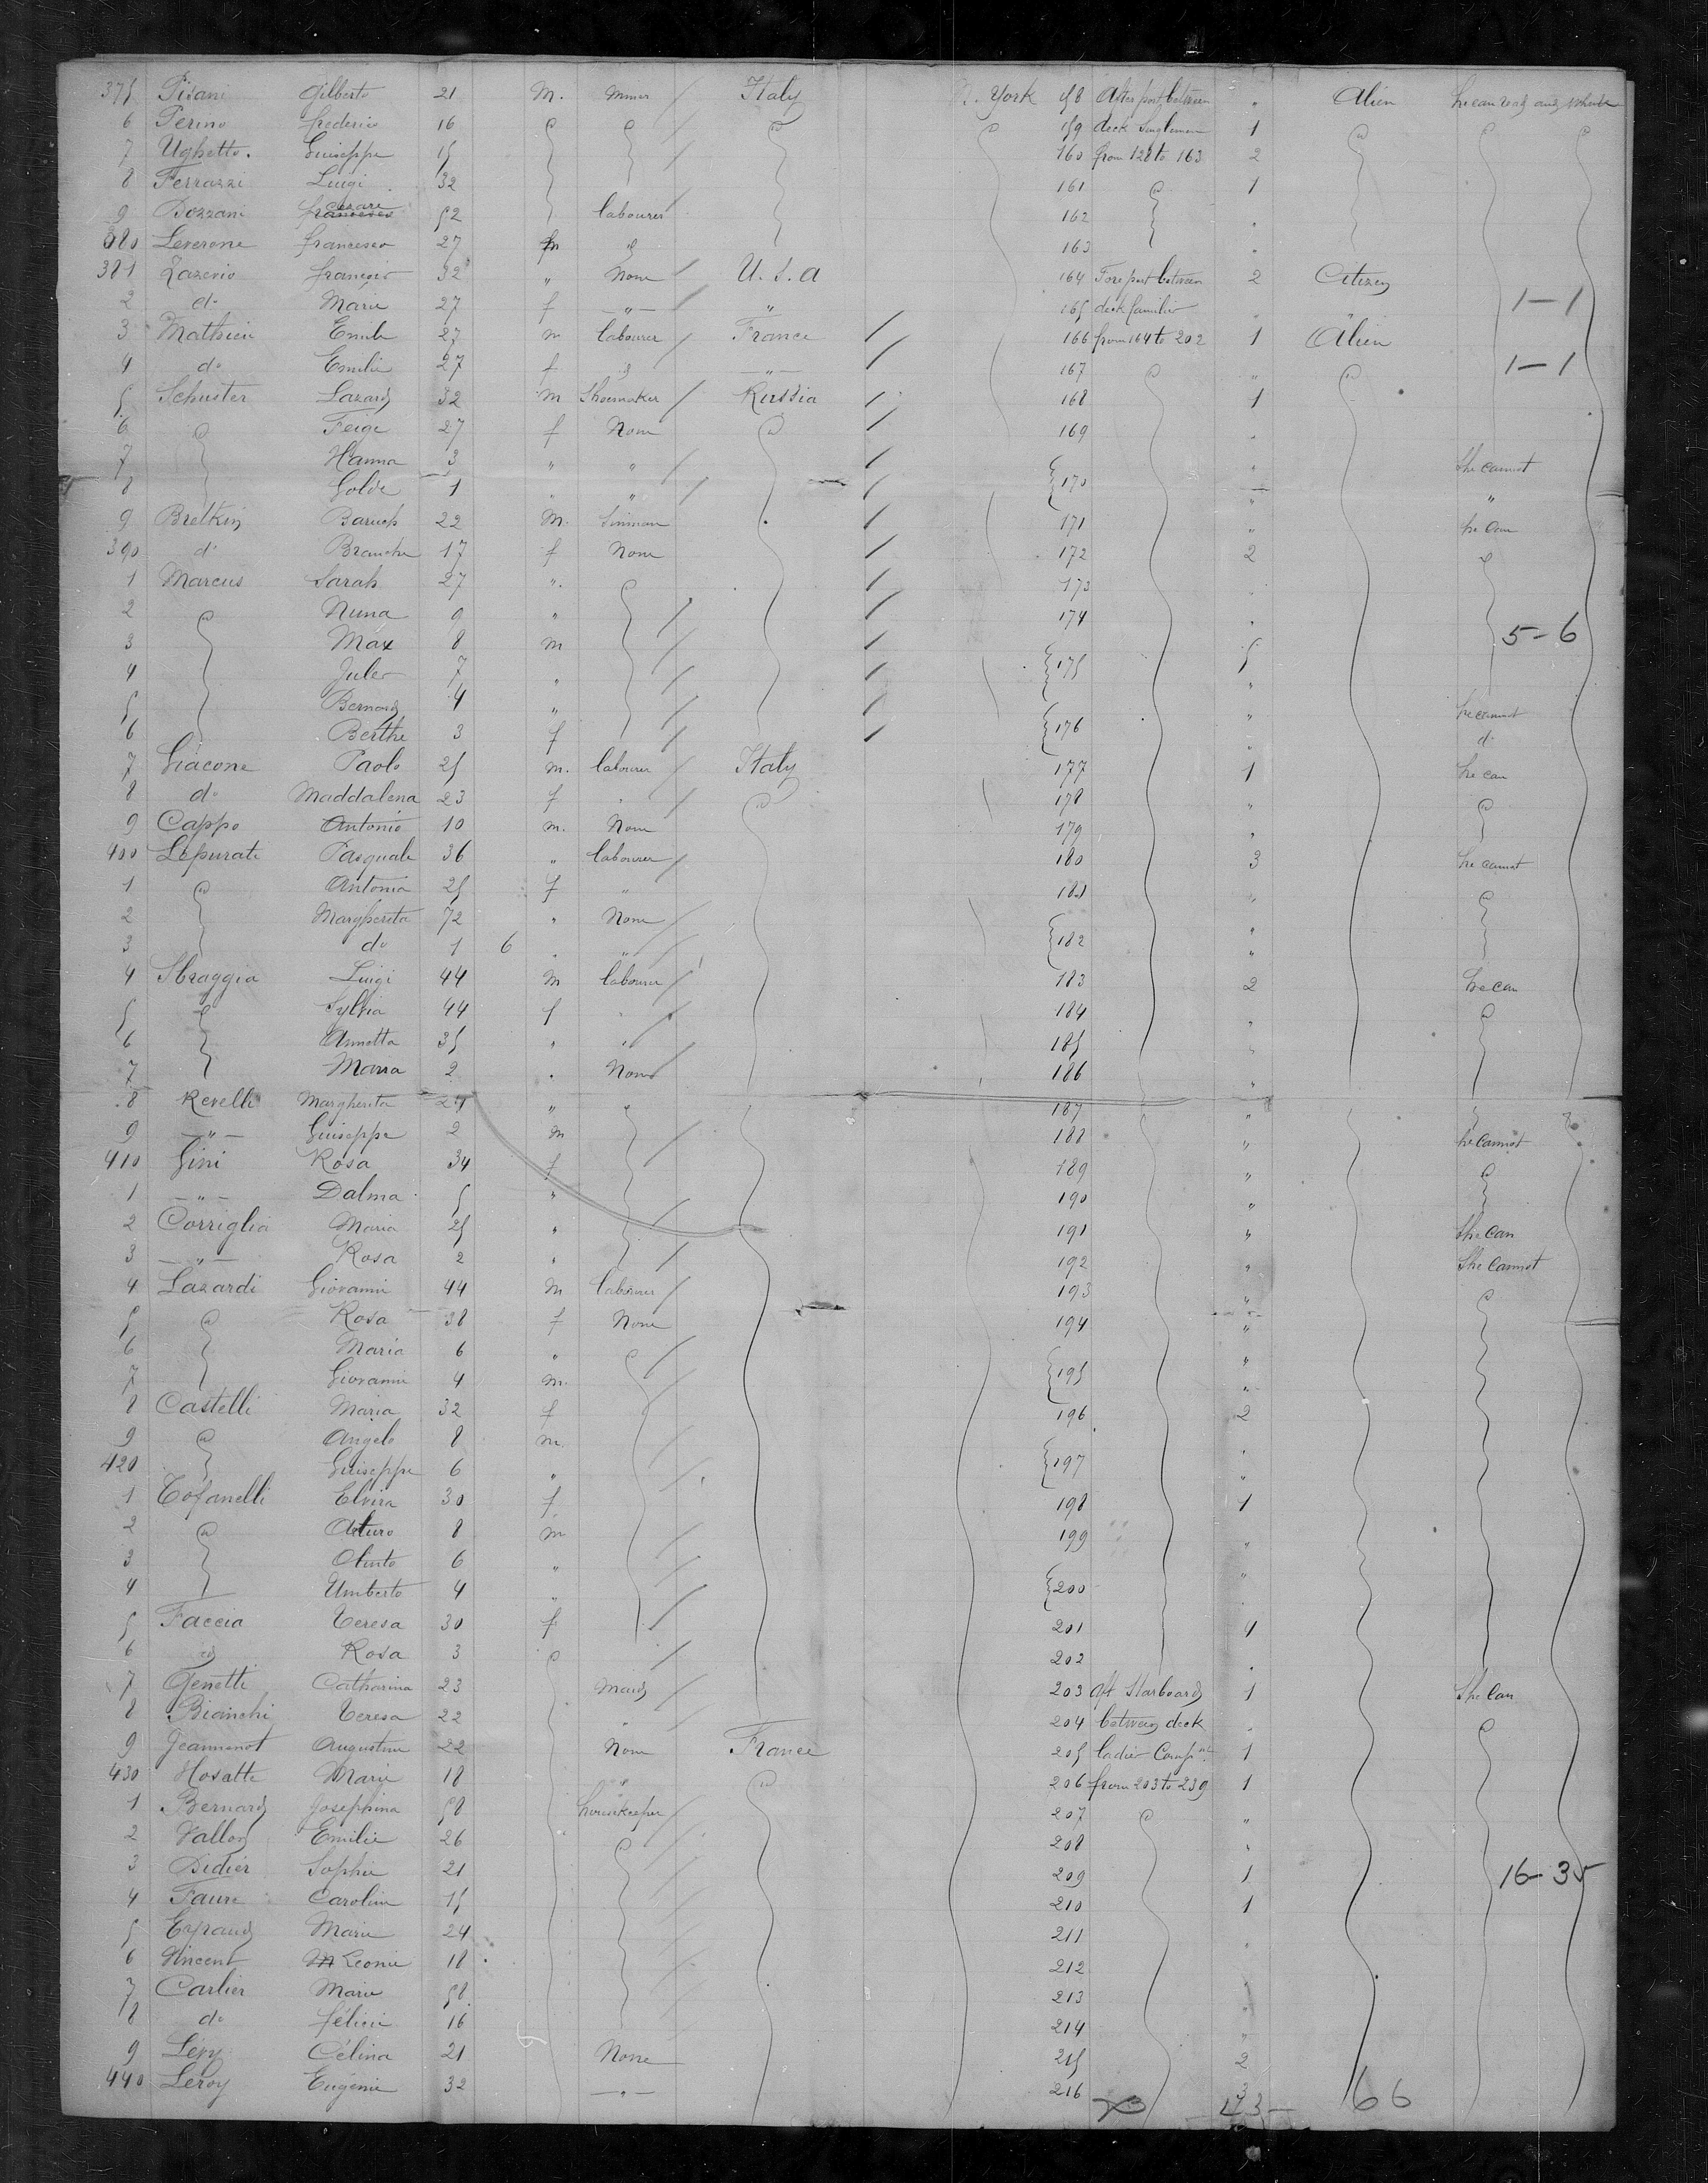 375 Pisani Gilberto 21 M. Miner Italy N. York 158 After port between " Alien he can read and write
6 Perino frederico 16 159 deck Singlemen 1
7 Ughetto. Guiseppe 15 160 from 128 to 163 2
8 Ferrazzi Luigi 32 161 1
9 Bozzani cesare 52 labourer 162
380 Leverone francesco 27 m 163
381 Zazerio françois 32 " None U. S. a 164 Fore port between 2 Citizen
2 do Marie 27 f " " 165 deck families 1-1
3 Mathieu Emile 27 m labourer France 166 from 164 to 202 1 Alien
4 do Emilie 27 f " 167 " 1-1
5 Schuster Lazard 32 m Shoemaker Russia 168 1
6 Feige 27 f None 169
7 Hanna 3 " " she cannot
8 Golde 1 " " 170 "
9 Brelkin Baruch 22 M. 171 " he can
390 do Branche 17 f None 172 2
1 Marcus Sarah 27 " 173
2 Nuna 9 " 174
3 Max 8 m 5-6
4 Jules 7 " 175 5
5 Bernard 4 " " he cannot
6 Berthe 3 f 176 d
7 Giacone Paolo 25 m. labourer Italy 177 1 he can
8 do Maddalena 23 f 178 "
9 Cappo Antonio 10 m. None 179
400 Lepurati Pasquale 36 " labourer 180 3 he cannot
1 Antonia 25 f " 181
2 Margherita 72 " None
3 do 1 6 " 182
4 Sbraggia Luigi 44 m labourer 183 2 he can
5 Sylvia 44 f 184
6 Annetta 35 " 185
7 Maria 2 None 186
8 Revelli Margherita 24 " 187 "
9 " Guiseppe 2 m 188 " he cannot
410 Gini Rosa 34 f 189 "
1 " Dalma 5 " 190 "
2 Corriglia Maria 25 " 191 " She can
3 " Rosa 2 " 192 " She cannot
4 Lazardi Giovanni 44 m labourer 193 "
5 Rosa 38 f None 194 "
6 Maria 6 " "
7 Giovanni 4 m. 195 "
8 Castelli Maria 32 f 196 2
9 Angelo 8 m.
420 Guiseppe 6 " 197 "
1 Tofanelli Elvira 30 f 198 1
2 Arturo 8 m 199 "
3 Olinto 6 " "
4 Umberto 4 " 200
5 Faccia Teresa 30 f 201 4
6 d Rosa 3 202
7 Genetti Catharina 23 Maid 203 aft Starboard 1 She can
8 Bianchi Teresa 22 " 204 between deck
9 Jeannenot Augustine 22 None France 205 ladies Compnt 1
430 Hosatte Marie 18 " 206 from 203 to 239 1
1 Bernard Josephina 58 housekeeper 207 "
2 Vallon Emilie 26 208
3 Didier Sophie 21 209 1 16-35
4 Faure Caroline 15 210 1
5 Espaud Marie 24 211
6 Vincent Leonie 18 212
7 Carlier Marie 58 213
8 do félicie 16 214 "
9 Lévy Célina 21 None 215 2
440 Leroy Eugénie 32 " 216 3
43 66